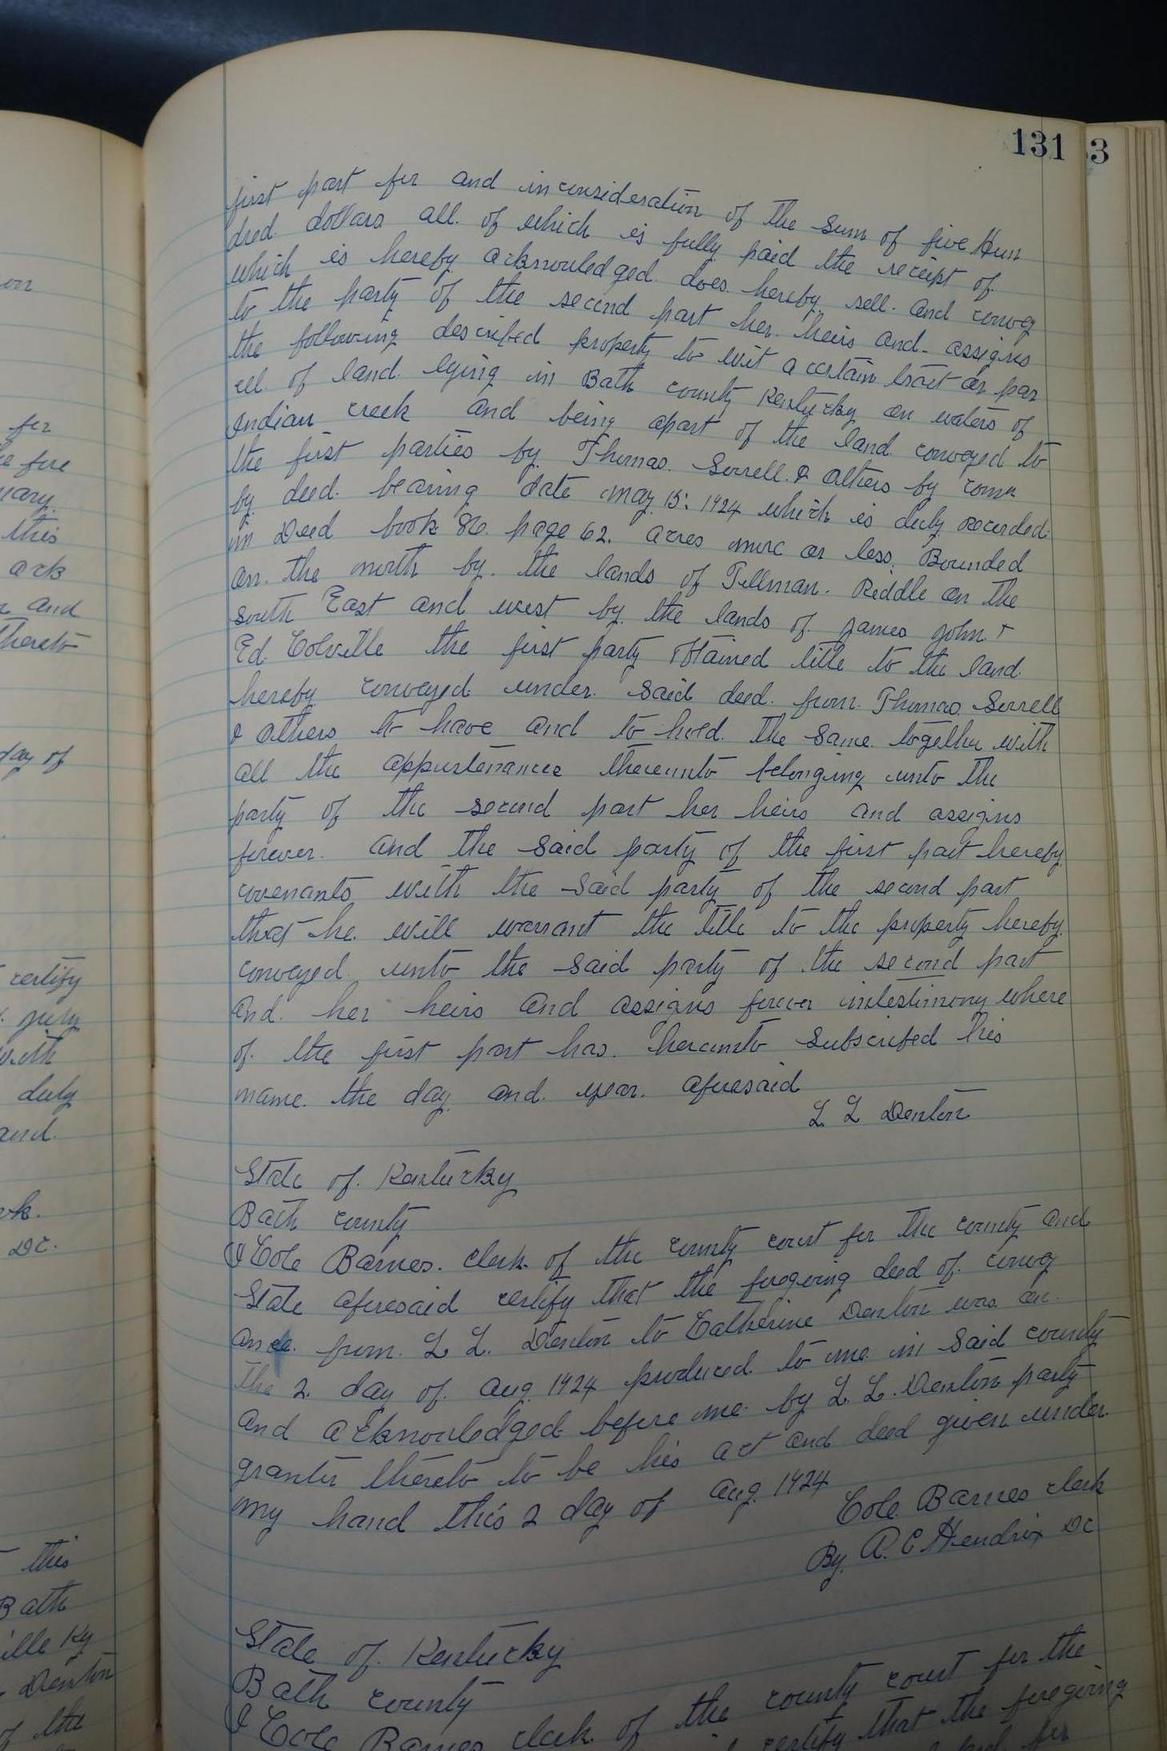 131
3
first part for and in consideration of the Sum of five Hun
dred dollars all of which is fully paid the receipt of
which is hereby acknowledged does hereby sell and convey
to the party of the second part her heirs and assigns
the following described property to wit a certain tract or par
cel of land lying in Bath county Kentucky on waters of
Indian creek and being apart of the land conveyed to
the first parties by Thomas Sorrell & others by
by deed bearing date may 15: 1924 which is duly recorded
in Deed book 86 page 62. acres more or less. Bounded
on the north by the lands of Tillman Riddle on the
south East and west by the lands of James John &
Ed Colville the first party obtained title to the land
hereby conveyed under said deed from Thomas Sorrell
& others to have and to hold the same together with
all the appurtenance thereunto belonging unto the
party of the second part her heirs and assigns
forever. and the said party of the first part hereby
covenants with the said party of the second part
that he will warrant the title to the property hereby
conveyed unto the said party of the second part
and her heirs and assigns forever intestimony where
of the first part has hereunto Subscribed his
name the day and year aforesaid
L L Denton
State of Kentucky
Bath county
I Cole Barnes clerk of the county court for the county and
State aforesaid certify that the foregoing deed of convey
ance from L L. Denton to Catherine Denton was on
the 2 day of aug 1924 produced to me in said county
and acknowledged before me by L. L. Denton party
grantor thereto to be his act and deed given under
my hand this 2 day of aug 1924
Cole Barnes clerk
By A. C Hendrix DC
State of Kentucky
Bath county
I Cole Barnes clerk of the county court for the
certify that the foregoing
for
fire
this
and
thereto
day of
certify
with
duly
and
DC.
this
Bath
ille Ky
Denton
of the